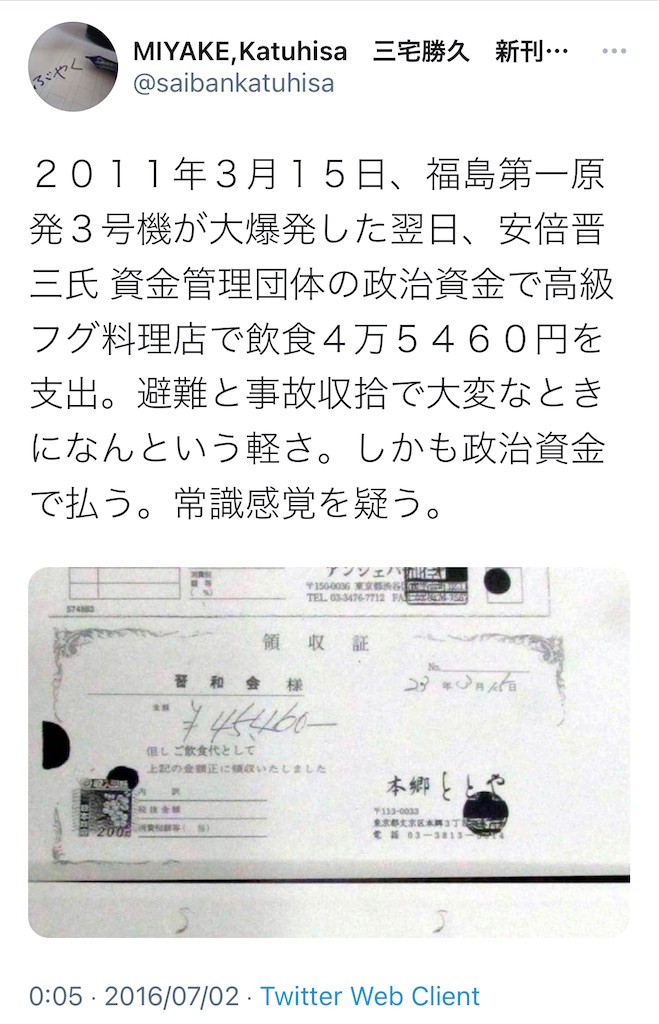 MIYAKE,Katuhisa　三宅勝久　新刊…
@saibankatuhisa
ぶやく
２０１１年３月１５日、福島第一原
発３号機が大爆発した翌日、安倍晋
三氏 資金管理団体の政治資金で高級
フグ料理店で飲食４万５４６０円を
支出。避難と事故収拾で大変なとき
になんという軽さ。しかも政治資金
で払う。常識感覚を疑う。
消費税
額等
( %)
〒150-0036 東京都渋谷
TEL. 03-3476-7712 FA
574883
領収証
No.
晋和会 様
23年3月15日
金額
¥45,460—
但しご飲食代として
上記の金額正に領収いたしました
内訳
税抜金額
消費税額等( %)
200
本郷ととや
〒113-0033
東京都文京区本郷3丁
電話 03-3813-
0:05 · 2016/07/02 · Twitter Web Client